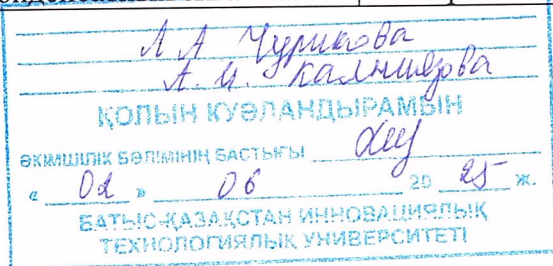 Л А Чурикова
А. И. Калниязова
ҚОЛЫН КУӘЛАНДЫРАМЫН
ӘКІМШІЛІК БӨЛІМІНІҢ БАСТЫҒЫ
« 02 » 06 20 25 ж.
БАТЫС-ҚАЗАҚСТАН ИННОВАЦИЯЛЫҚ
ТЕХНОЛОГИЯЛЫҚ УНИВЕРСИТЕТІ